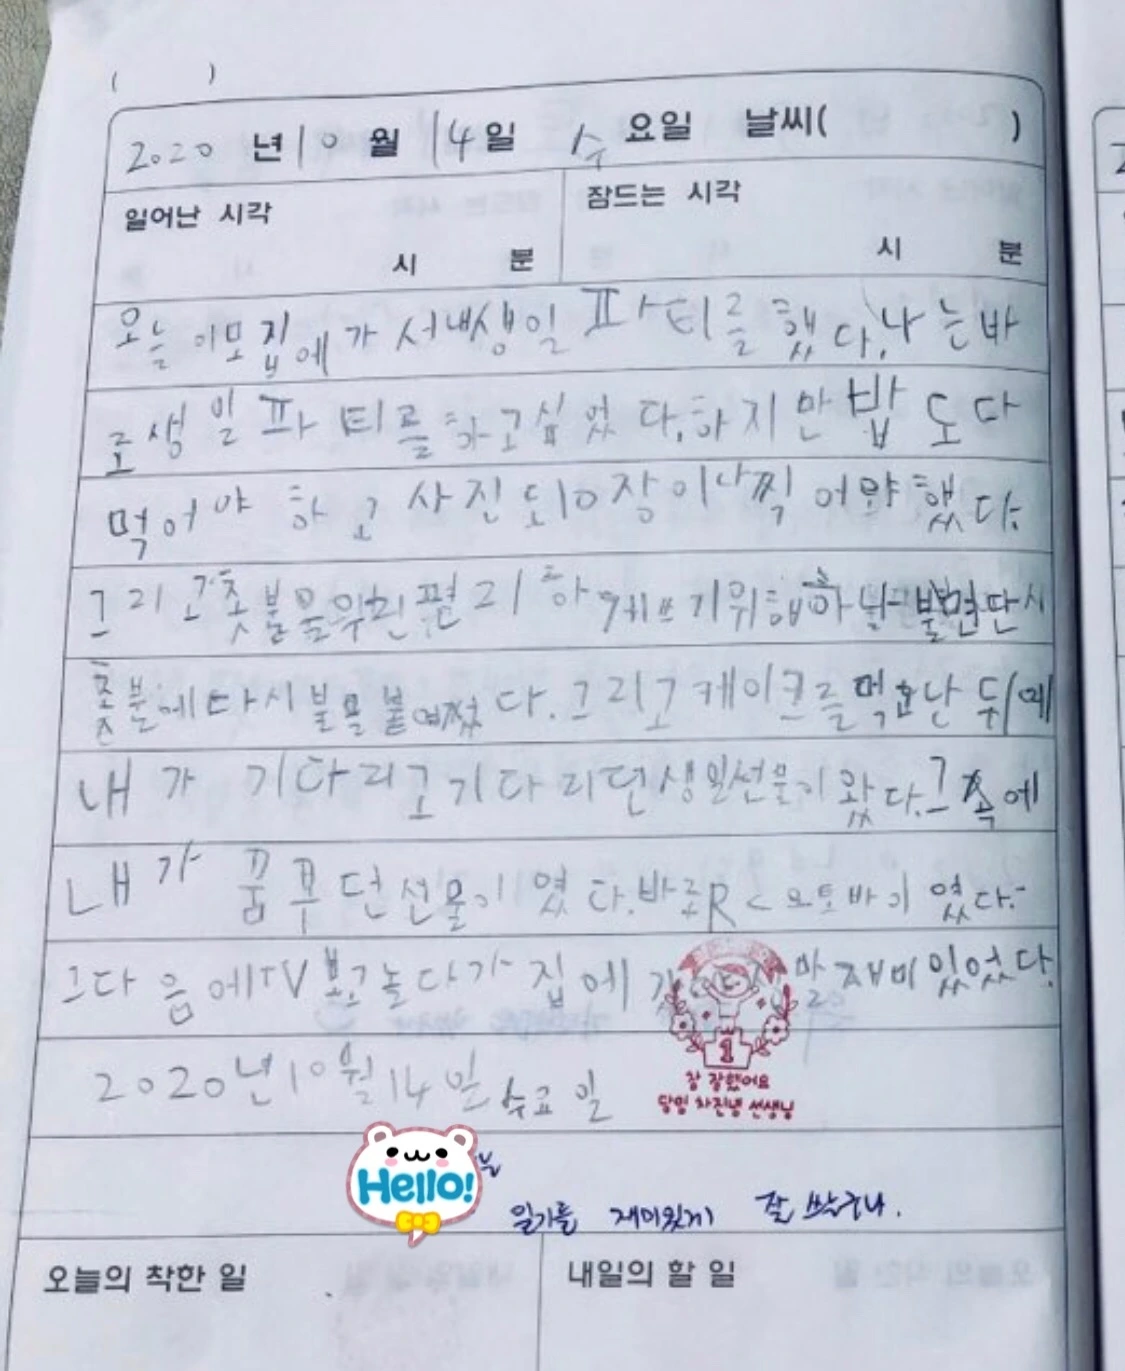 ( )
2020 년 10 월 14 일 수 요일 날씨( )
일어난 시각 시 분
잠드는 시각 시 분
오늘 이모집에가서내생일 파티를 했다.나는바
로생일 파티를하고싶었다.하지만밥도다
먹어야 하고 사진도10장이나찍어야했다.
그리고촛불을 하
다시불을 다.그리고케이크를먹고난 뒤에
내가 기다리고기다리던생일선물이왔다.그속에
내가 꿈꾸던선물이였다.바로RC오토바이였다.
그다음에TV보고놀다가집에 재미있었다.
2020년10월14일수요일
참 잘했어요
선생님
Hello!
일기를 재미있게 잘 썼구나.
오늘의 착한 일
내일의 할 일